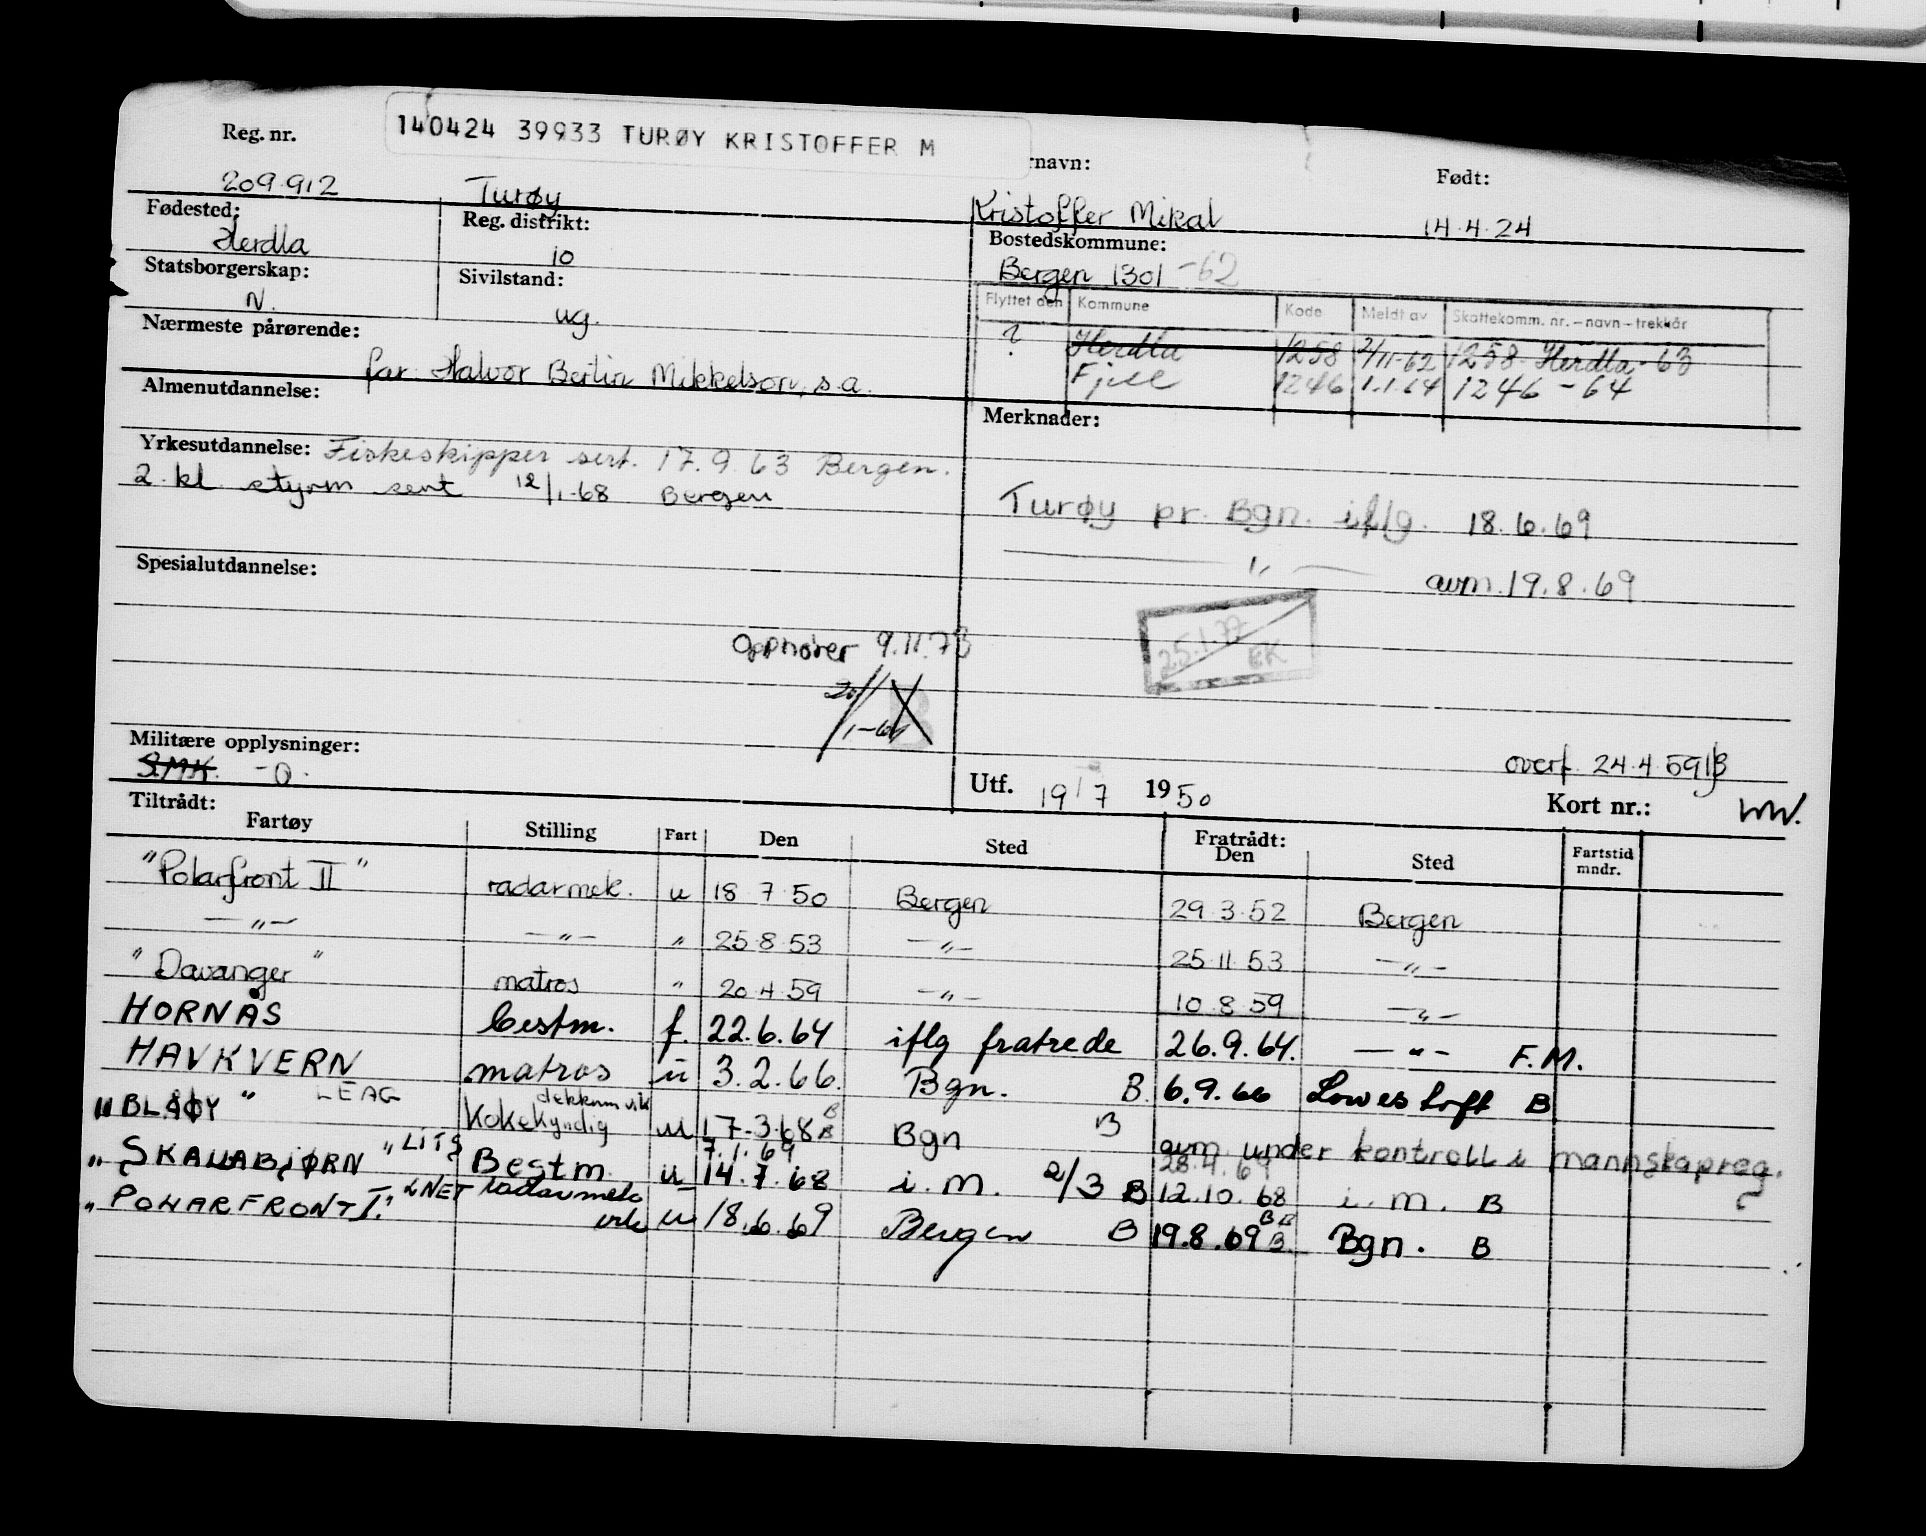 140424 39933 TURØY KRISTOFFER M
Reg. nr. rnavn: Født:
209.912 Turøy Kristoffer Mikal 14.4.24
Fødested: Reg. distrikt: Bostedskommune:
Herdla 10 Bergen 1301 -62
Statsborgerskap: Sivilstand:
N. ug.
Flyttet den Kommune Kode Meldt av Skattekomm. nr. – navn – trekkår
? Herdla 1258 2/11-62 1258 Herdla - 63
Fjell 1246 1.1.64 1246 - 64
Nærmeste pårørende:
far Halvor Berlin Mikkelson, s.a.
Almenutdannelse: Merknader:
Yrkesutdannelse: Fiskeskipper sert. 17.9.63 Bergen.
2. kl. styrm sert 12/1-68 Bergen
Turøy pr. Bgn. iflg. 18.6.69
— " — avm. 19.8.69
Spesialutdannelse:
25.1.77
EK
Opphører 9.11.73
20/1-64 B
Militære opplysninger:
S.M.K. - 0.
overf. 24.4.59 B
Utf. 19/7 1950 Kort nr.:
Tiltrådt: Fratrådt:
Fartøy Stilling Fart Den Sted Den Sted Fartstid mndr.
"Polarfront II" radarmek. u 18 7 50 Bergen 29.3.52 Bergen
—"— —"— " 25.8.53 —"— 25.11.53 —"—
"Davanger" matros " 20.4.59 —"— 10.8.59 —"—
HORNÅS bestm. f. 22.6.64 iflg fratrede 26.9.64. —"— F.M.
HAVKVERN matros u 3.2.66. Bgn. B. 6.9.66 Lowestoft B
"BLÅØY" LEAG Kokekyndig dekksm vik u 17.3.68 B Bgn B avm under kontroll i mannskapsreg.
7.1.69 28.4.69
"SKALLABJØRN" LITS Bestm. u 14.7.68 i. M. 2/3 B 12.10.68 i. m. B
"POLARFRONT I." LNET radarmek vik u 18.6.69 Bergen B 19.8.69 B Bgn. B